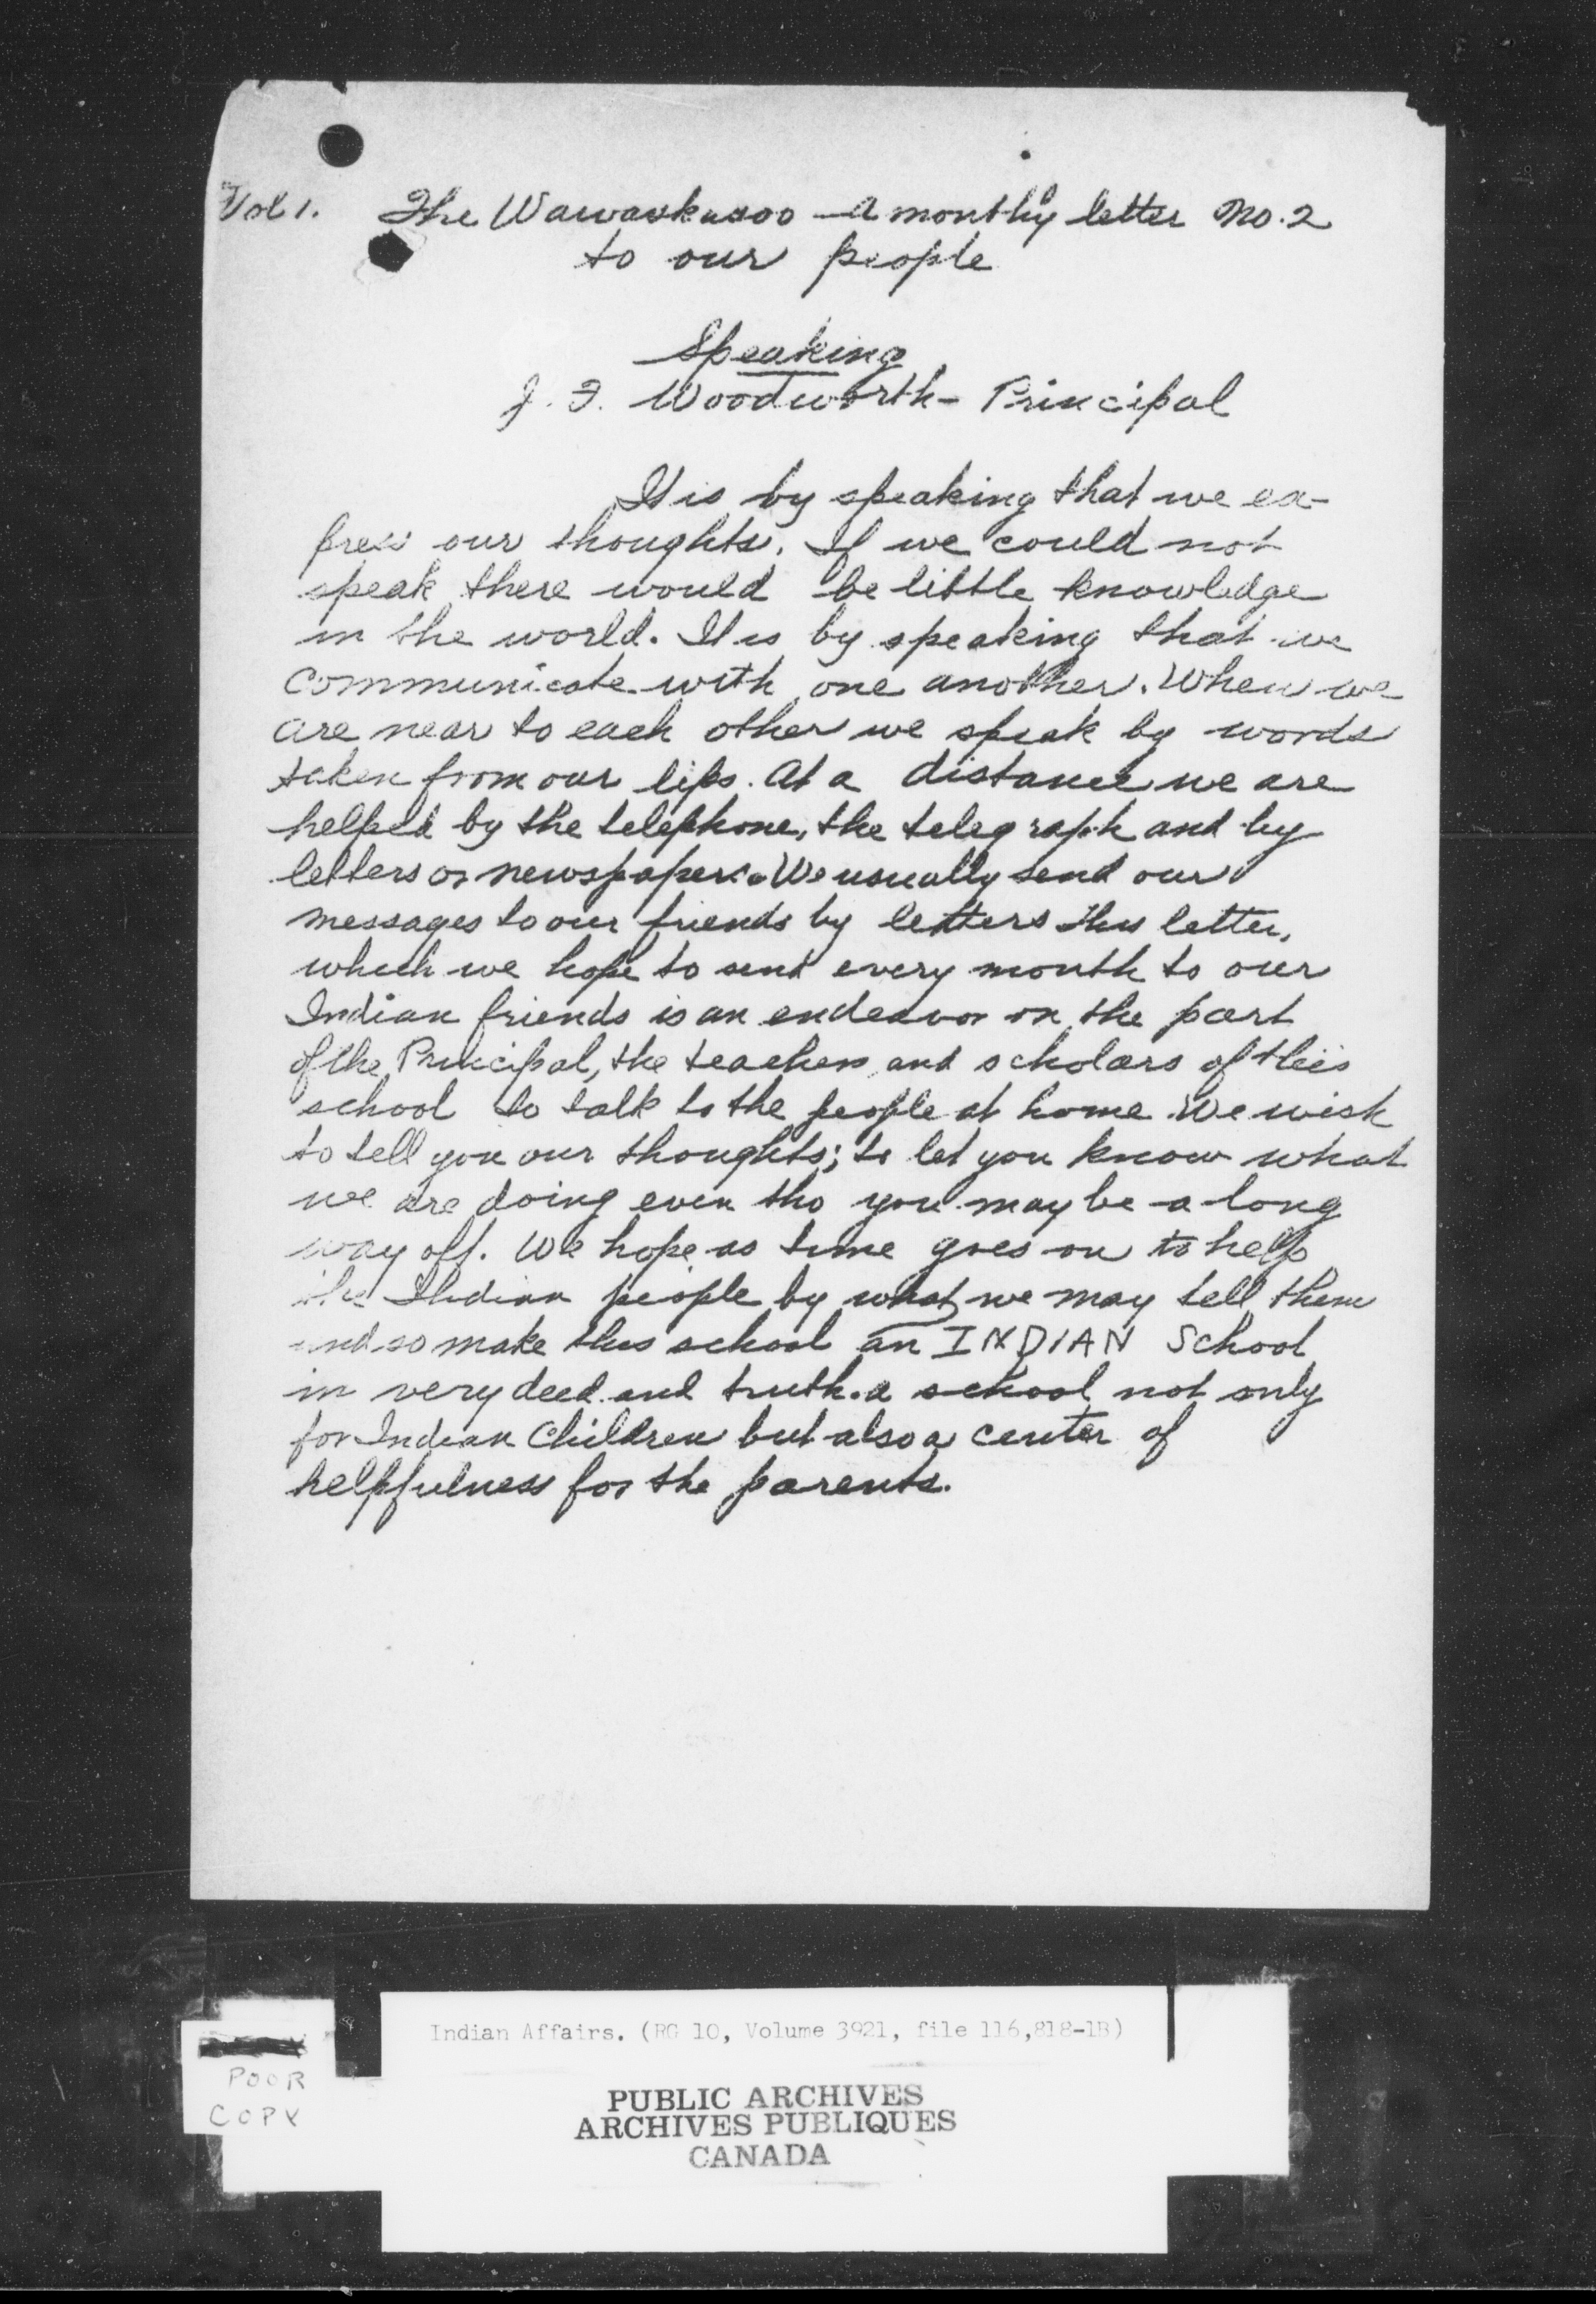 Vol 1. The Wawaskasoo - A monthly letter No. 2
to our people
Speaking
J. F. Woodworth - Principal
It is by speaking that we ex-
press our thoughts. If we could not
speak there would be little knowledge
in the world. It is by speaking that we
communicate with one another. When we
are near to each other we speak by words
taken from our lips. At a distance we are
helped by the telephone, the telegraph and by
letters or newspapers. We usually send our
messages to our friends by letters this letter,
which we hope to send every month to our
Indian friends is an endeavor on the part
of the Principal, the teachers and scholars of this
school to talk to the people at home. We wish
to tell you our thoughts; to let you know what
we are doing even tho you may be a long
way off. We hope as time goes on to help
the Indian people by what we may tell them
and so make this school an INDIAN School
in very deed and truth. a school not only
for Indian Children but also a center of
helpfulness for the parents.
Indian Affairs. (RG 10, Volume 3921, file 116,818-1B)
POOR
COPY
PUBLIC ARCHIVES
ARCHIVES PUBLIQUES
CANADA